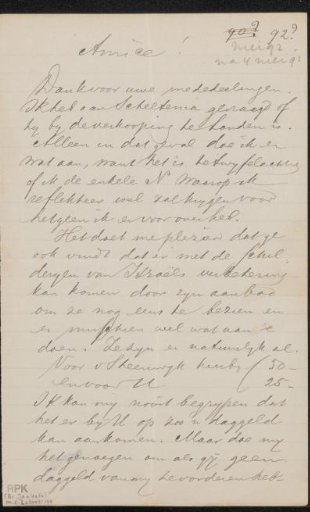 90? 92?
mei 92
na 4 mei 92
Amice!
Dank voor uwe mededeelingen.
Ik heb aan Scheltema gevraagd of
hij bij de verkooping te handen is.
Alleen in dat geval doe ik er
wat aan, want het is betwyfelachtig
of ik de enkele No waarop ik
reflekteer wel zal krygen voor
hetgeen ik er voor over heb.
Het doet me plezier dat ge
ook vindt dat er met de schil-
deryen van Israëls verbetering
kan komen door zyn aanbod
om ze nog eens te bezien en
er misschien wel wat aan te
doen. Ze zyn er natuurlyk al.
Voor v Steenwyk hierby f 50-
en voor U 25-
Ik kan my nooit begrypen dat
het er by U op zoo'n daggeld
kan aankomen. Maar doe my
het genoegen om als gy geen
daggeld van my te vorderen heb-
RPK